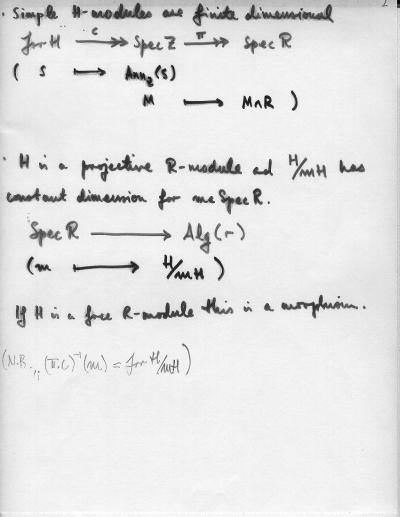 · Simple H-modules are finite dimensional
Irr H —c↠ Spec Z —π↠ Spec R
( S ⟼ Ann_Z(S)
M ⟼ M∩R )
· H is a projective R-module ad H/mH has
constant dimension for m∈Spec R.
Spec R ⟶ Alg(r)
(m ⟼ H/mH )
If H is a free R-module this is a morphism.
(N.B. (π·c)⁻¹(m) = Irr H/mH)